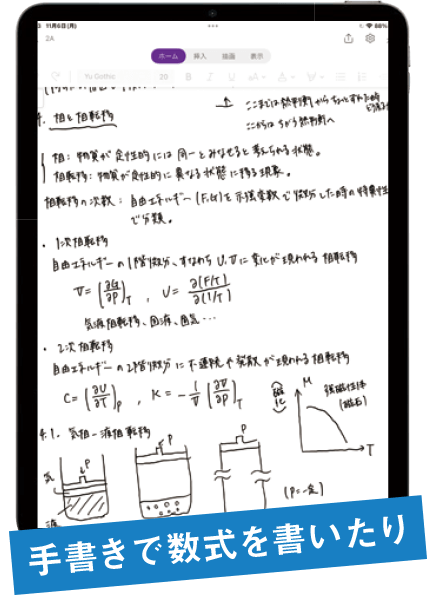 11月6日(月) 88%
2A
ホーム 挿入 描画 表示
Yu Gothic 20 B I U
ここまでは熱平衡からちょっとずれた時
ここからはちがう熱平衡へ
4. 相と相転移
相:物質が定性的には同一とみなせると考えられる状態。
相転移:物質が定性的に異なる状態に移る現象。
相転移の次数:自由エネルギー(F,G)を示強変数で微分した時の特異性
で分類。
・1次相転移
自由エネルギーの1階微分、すなわちU,Vに変化が現われる相転移
V=(∂G/∂P)_T , U=∂(F/T)/∂(1/T)
気液相転移、固液、固気・・・
・2次相転移
自由エネルギーの2階微分に不連続や発散が現われる相転移
C=(∂U/∂T)_P , K=-1/V(∂V/∂P)_T
M
強磁性体
(磁石)
T
4.1. 気相-液相転移
P
P
P
気
液
(P=一定)
手書きで数式を書いたり